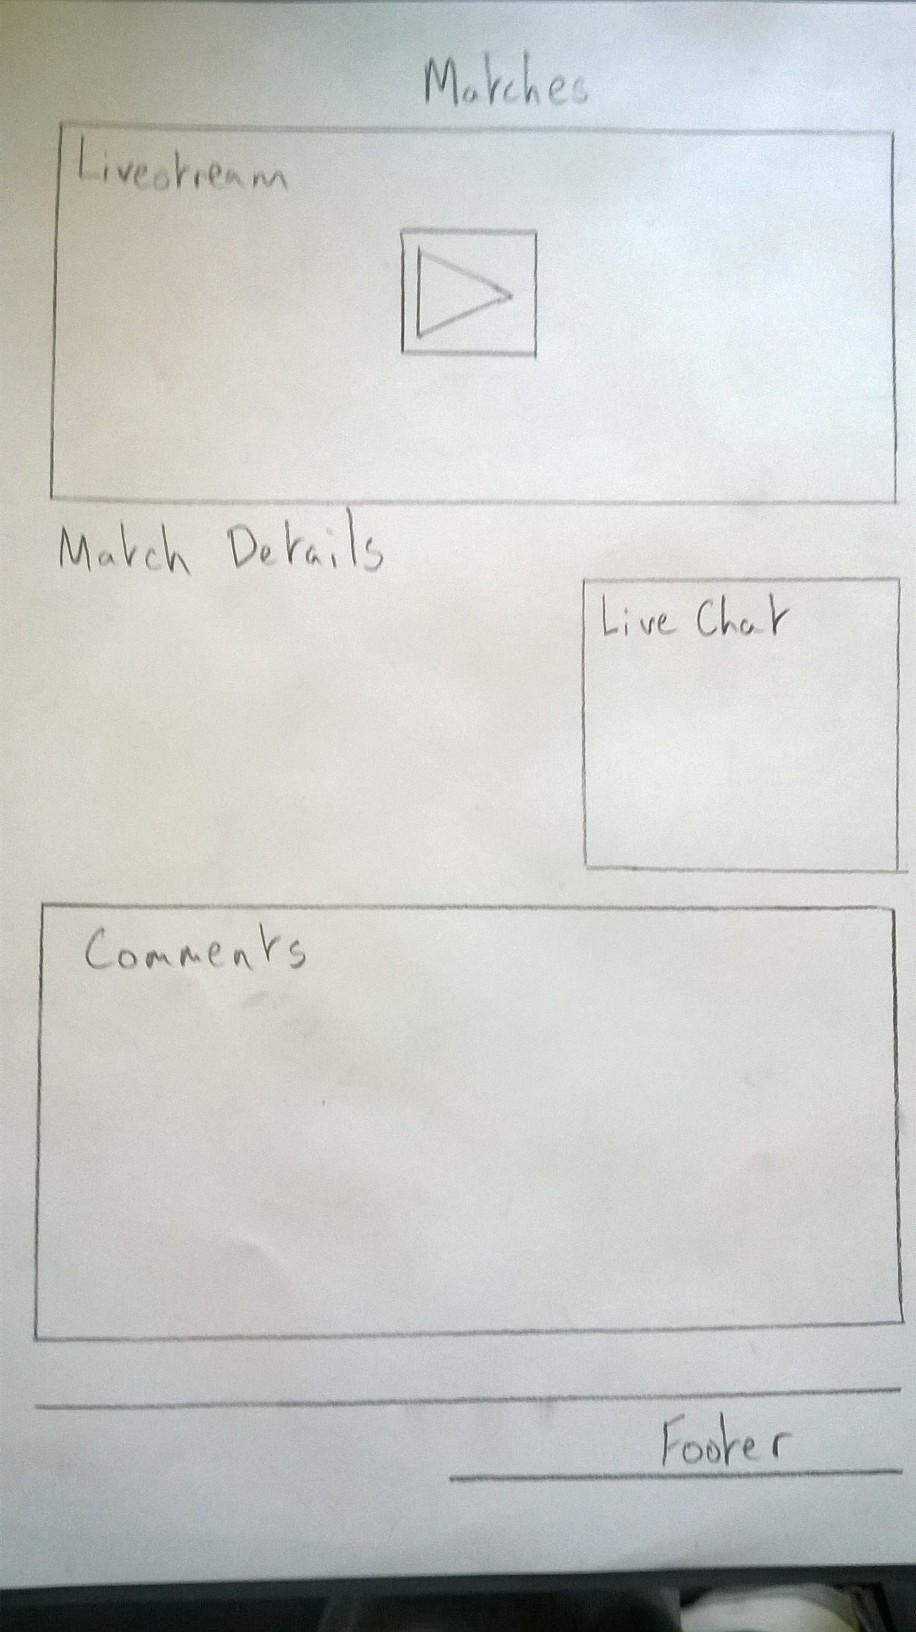 Matches
Livestream
Match Details
Live Chat
Comments
Footer